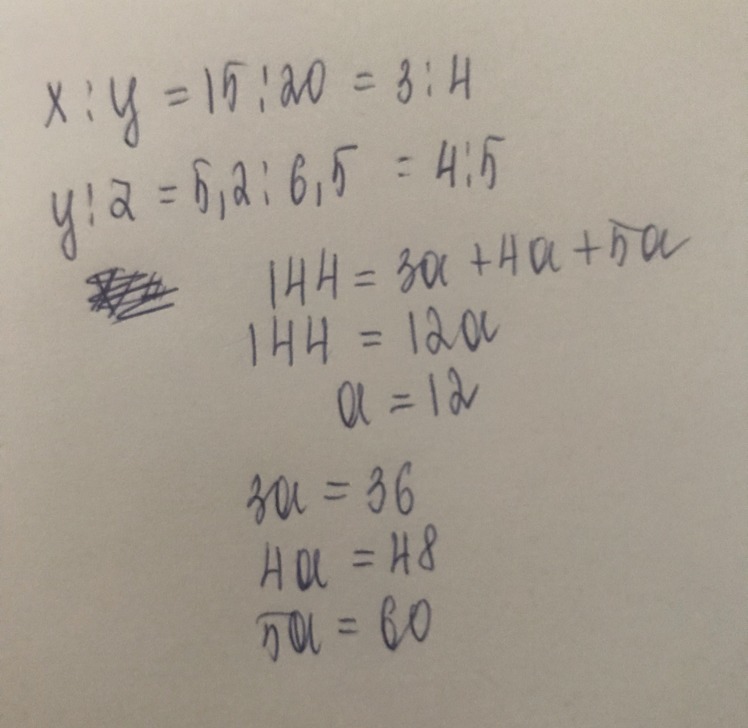 x:y = 15:20 = 3:4
y:2 = 5,2:6,5 = 4:5
144 = 3a + 4a + 5a
144 = 12a
a = 12
3a = 36
4a = 48
5a = 60